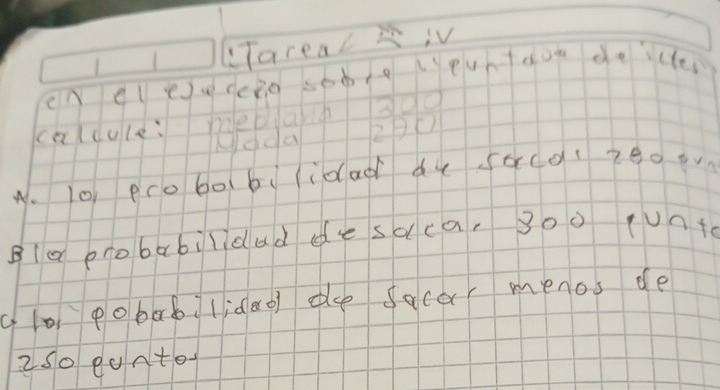 Tarea
en el sobre "puntos de icfes
calcule: mediana 300
Moda 270
A. la probabilidad de sacar 280 pun
B la probabilidad de sacar 300 punto
C la pobabilidad de sacar menos de
250 puntos